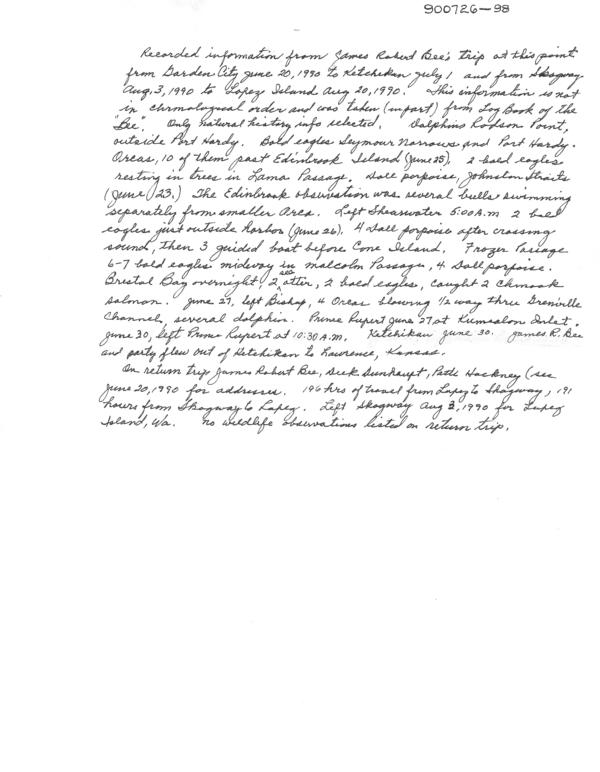 900726-98
Recorded information from James Robert Bee's trip at this point
from Garden City June 20, 1990 to Ketchikan July 1 and from Skagway
Aug. 3, 1990 to Lopez Island Aug 20, 1990. This information is not
in chronological order and was taken (in part) from Log Book of the
"Bee". Only natural history info selected. Dolphins Rodson Point,
outside Port Hardy. Bald eagles Seymour Narrows and Port Hardy.
Orcas, 10 of them past Edinbrook Island (June 25), 2 bald eagles
resting in trees in Lama Passage. Dall porpoise, Johnston Straits
(June 23.) The Edinbrook observation was several bulls swimming
separately from smaller Orcas. Left Shearwater 5:00 A.M. 2 bald
eagles just outside harbor (June 26). 4 Dall porpoise after crossing
sound, then 3 guided boat before Cone Island. Frozer Passage
6-7 bald eagles midway in Malcolm Passage, 4 Dall porpoise.
Bristol Bay overnight, 2 sea otter, 2 bald eagles, caught 2 chinook
salmon. June 27, left Bishop, 4 Orcas blowing 1/2 way thru Grenville
Channel, several dolphin. Prince Rupert June 27 at Kumealon Inlet.
June 30, left Prince Rupert at 10:30 A.M. Ketchikan June 30. James R. Bee
and party flew out of Ketchikan to Lawrence, Kansas.
On return trip James Robert Bee, Dick Sunhaupt, Patti Hackney (see
June 20, 1990 for addresses. 196 hrs of travel from Lopez to Skagway, 191
hours from Skagway to Lopez. Left Skagway Aug 3, 1990 for Lopez
Island, Wa. No wildlife observations listed on return trip.